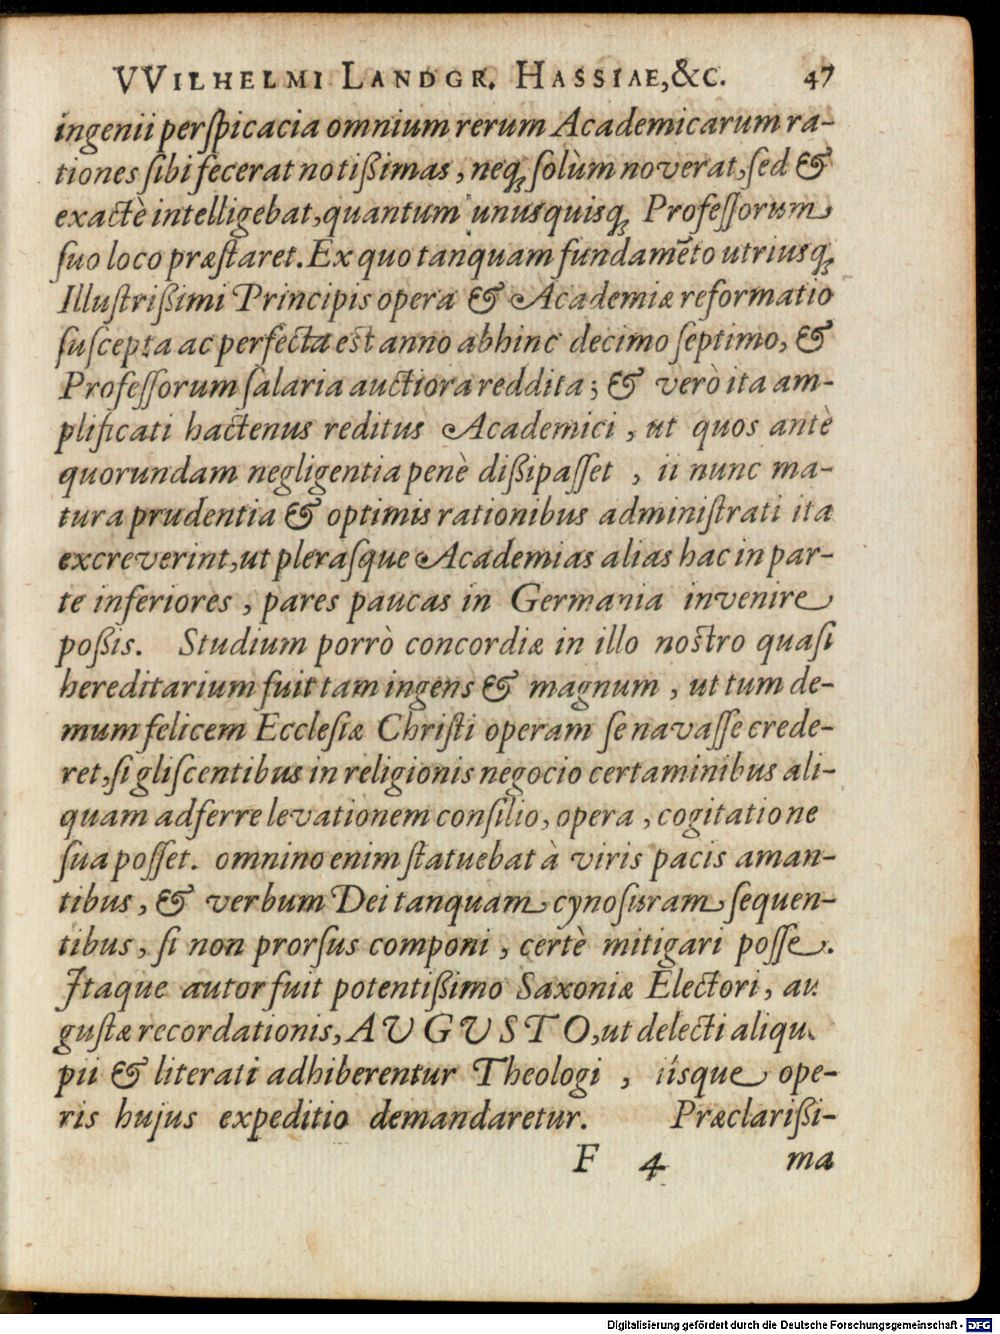 VVILHELMI LANDGR. HASSIAE,&C. 47
ingenii perſpicacia omnium rerum Academicarum ra-
tiones ſibi fecerat notißimas, neqꝫ ſolùm noverat, ſed &
exactè intelligebat, quantum unusquisqꝫ Profeſſorum
ſuo loco præſtaret. Ex quo tanquam fundamẽto utriusqꝫ
Illuſtrißimi Principis opera & Academiæ reformatio
ſuſcepta ac perfecta est anno abhinc decimo ſeptimo, &
Profeſſorum ſalaria auctiora reddita; & verò ita am-
plificati hactenus reditus Academici, ut quos antè
quorundam negligentia penè dißipaſſet, ii nunc ma-
tura prudentia & optimis rationibus adminiſtrati ita
excreverint, ut pleraſque Academias alias hac in par-
te inferiores, pares paucas in Germania invenire
poßis. Studium porrò concordiæ in illo nostro quaſi
hereditarium fuit tam ingens & magnum, ut tum de-
mum felicem Eccleſiæ Chriſti operam se navaſſe crede-
ret, ſi gliſcentibus in religionis negocio certaminibus ali-
quam adferre levationem conſilio, opera, cogitatione
ſua poſſet. omnino enim ſtatuebat à viris pacis aman-
tibus, & verbum Dei tanquam cynoſuram ſequen-
tibus, ſi non prorſus componi, certè mitigari poſſe.
Itaque autor fuit potentißimo Saxoniæ Electori, au
guſtæ recordationis, AUGUSTO, ut delecti aliqu
pii & literati adhiberentur Theologi, iisque ope-
ris hujus expeditio demandaretur. Præclarißi-
F 4 ma
Digitalisierung gefördert durch die Deutsche Forschungsgemeinschaft - DFG